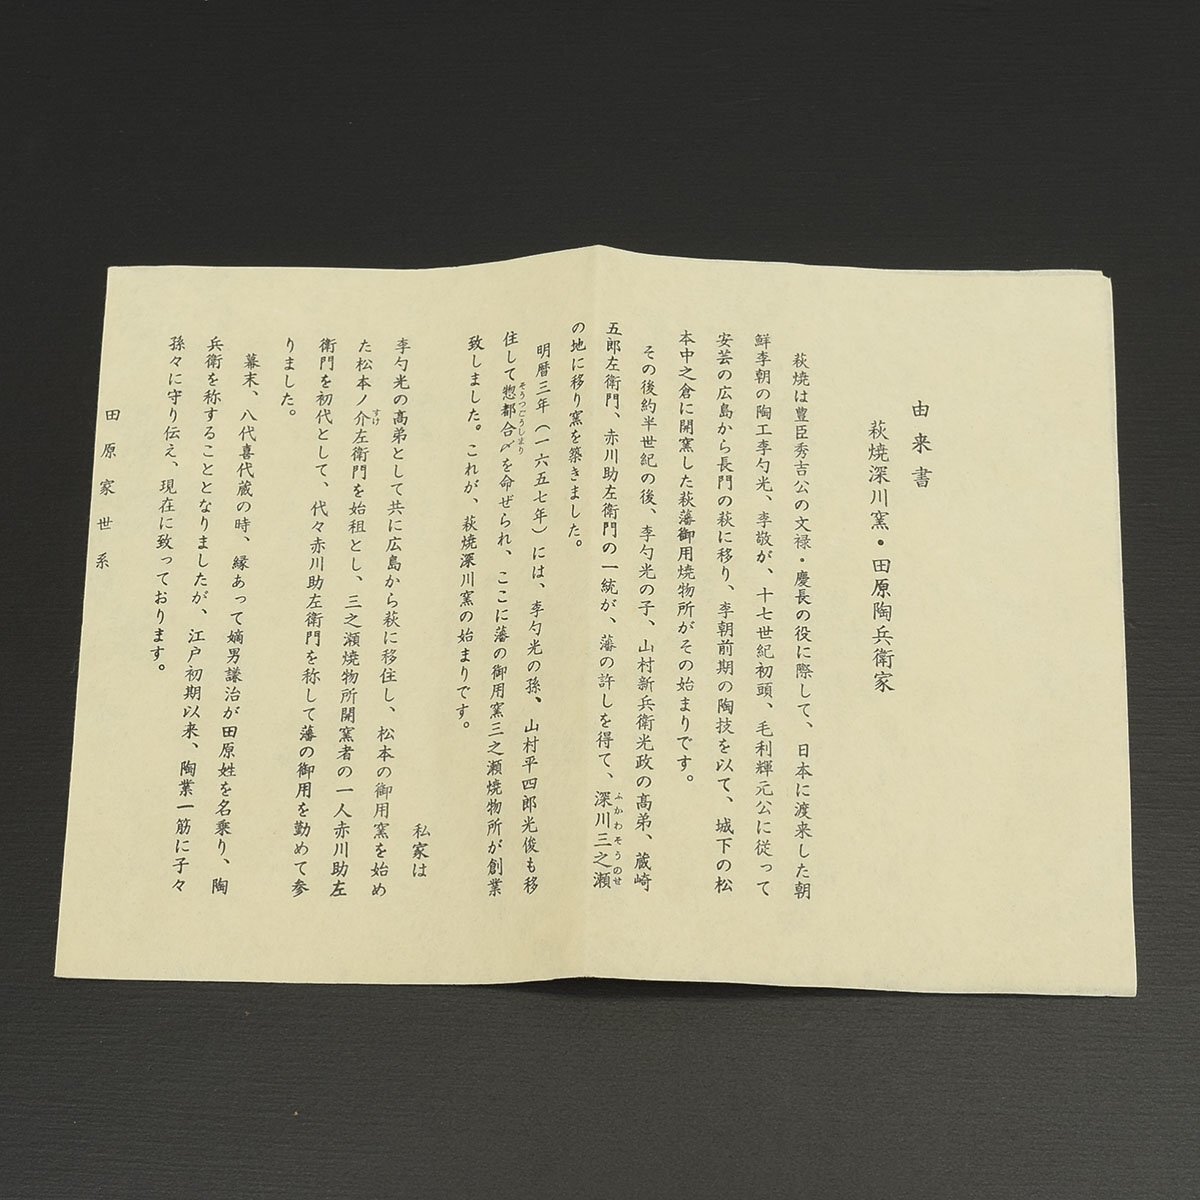 由来書
萩焼深川窯・田原陶兵衛家
萩焼は豊臣秀吉公の文禄・慶長の役に際して、日本に渡来した朝
鮮李朝の陶工李勺光、李敬が、十七世紀初頭、毛利輝元公に従って
安芸の広島から長門の萩に移り、李朝前期の陶技を以て、城下の松
本中之倉に開窯した萩藩御用焼物所がその始まりです。
その後約半世紀の後、李勺光の子、山村新兵衛光政の高弟、蔵崎
五郎左衛門、赤川助左衛門の一統が、藩の許しを得て、深川三之瀬
ふかわそうのせ
の地に移り窯を築きました。
明暦三年(一六五七年)には、李勺光の孫、山村平四郎光俊も移
住して惣都合〆を命ぜられ、ここに藩の御用窯三之瀬焼物所が創業
そうつごうしまり
致しました。これが、萩焼深川窯の始まりです。
私家は
李勺光の高弟として共に広島から萩に移住し、松本の御用窯を始め
た松本ノ介左衛門を始祖とし、三之瀬焼物所開窯者の一人赤川助左
すけ
衛門を初代として、代々赤川助左衛門を称して藩の御用を勤めて参
りました。
幕末、八代喜代蔵の時、縁あって嫡男謙治が田原姓を名乗り、陶
兵衛を称することとなりましたが、江戸初期以来、陶業一筋に子々
孫々に守り伝え、現在に致っております。
田原家世系